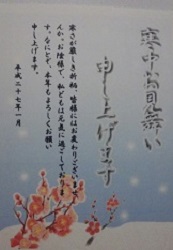 寒中お見舞い
申し上げます
寒さが厳しき折柄、皆様にはお変わりございませ
んか。お陰様で、私どもは元気に過ごしておりま
す。なにとぞ、本年もよろしくお願い
申し上げます。
平成二十七年一月